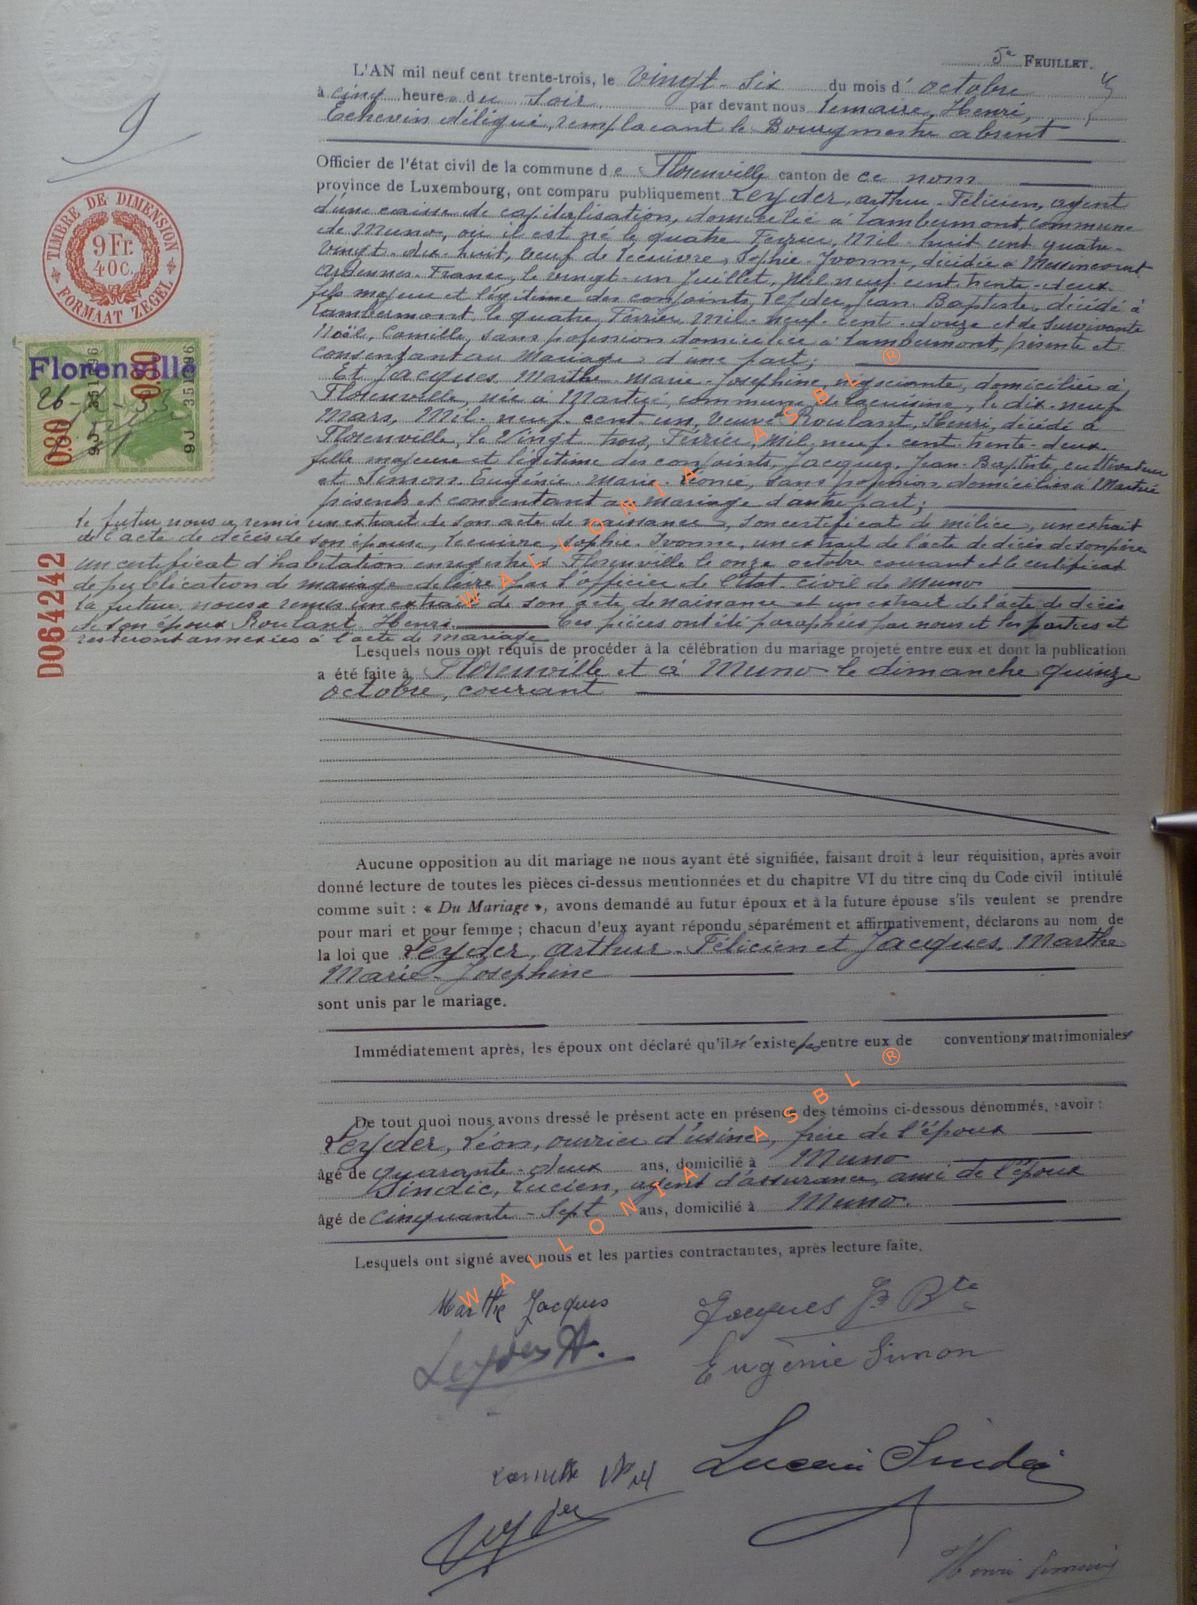 5e FEUILLET.
9
L'AN mil neuf cent trente-trois, le vingt-six du mois d'octobre
à cinq heures du soir, par devant nous Lemaire, Henri,
Echevin délégué, remplaçant le Bourgmestre absent
Officier de l'état civil de la commune de Florenville canton de ce nom
province de Luxembourg, ont comparu publiquement Leyder, arthur-Félicien, agent
d'une caisse de capitalisation, domicilié à Lambermont, commune
de Muno, où il est né le quatre Février, Mil-huit cent quatre-
vingt-dix-huit, veuf de Lecuivre, Sophie-Yvonne, décédée à Messincourt
Ardennes-France, le vingt-un Juillet, Mil neuf cent trente-deux
fils majeur et légitime des conjoints, Leyder, Jean-Baptiste, décédé à
Lambermont le quatre Février Mil-neuf-cent-douze et de survivante
Noël, Camille, sans profession domiciliée à Lambermont, présente et
consentant au Mariage, d'une part;
Et Jacques Marthe-Marie-Joséphine, négociante, domiciliée à
Florenville, née à Martué, commune de Lacuisine, le dix-neuf
Mars, Mil-neuf-cent-un, veuve Roulant, Henri, décédé à
Florenville, le Vingt trois, Février, Mil neuf-cent-trente-deux
fille majeure et légitime des conjoints, Jacques, Jean-Baptiste, cultivateur
et Simon Eugénie-Marie-Léonie, sans profession domiciliés à Martué
présents et consentant au Mariage d'autre part;
Le futur nous a remis un extrait de son acte de naissance, son certificat de milice, un extrait
de l'acte de décès de son épouse, Lecuivre, Sophie-Yvonne, un extrait de l'acte de décès de son père
un certificat d'habitation enregistré à Florenville le onze octobre courant et le certificat
de publication de mariage délivré par l'officier de l'Etat civil de Muno
La future nous a remis un extrait de son acte de naissance et un extrait de l'acte de décès
de son époux Roulant, Henri Ces pièces ont été paraphées par nous et les parties et
resteront annexées à l'acte de mariage
Lesquels nous ont requis de procéder à la célébration du mariage projeté entre eux et dont la publication
a été faite à Florenville et à Muno le dimanche quinze
octobre, courant
Aucune opposition au dit mariage ne nous ayant été signifiée, faisant droit à leur réquisition, après avoir
donné lecture de toutes les pièces ci-dessus mentionnées et du chapitre VI du titre cinq du Code civil intitulé
comme suit : « Du Mariage », avons demandé au futur époux et à la future épouse s'ils veulent se prendre
pour mari et pour femme ; chacun d'eux ayant répondu séparément et affirmativement, déclarons au nom de
la loi que Leyder, arthur-Félicien et Jacques, Marthe
Marie-Joséphine
sont unis par le mariage.
Immédiatement après, les époux ont déclaré qu'il n'existe pas entre eux de conventions matrimoniales
De tout quoi nous avons dressé le présent acte en présence des témoins ci-dessous dénommés, savoir :
Leyder, Léon, ouvrier d'usine, frère de l'époux
âgé de quarante-deux ans, domicilié à Muno
Sindic, Lucien, agent d'assurance, ami de l'époux
âgé de cinquante-sept ans, domicilié à Muno.
Lesquels ont signé avec nous et les parties contractantes, après lecture faite.
Marthe Jacques
Jacques J Bte
Leyder A.
Eugénie Simon
Camille Noël
Lucien Sindic
Leyder
Henri Lemaire
TIMBRE DE DIMENSION
9 Fr.
40 C.
FORMAAT ZEGEL
Florenville
0.80
0.80
9J 351296
9J 351296
D064242
WALLONIA ASBL ®
WALLONIA ASBL ®